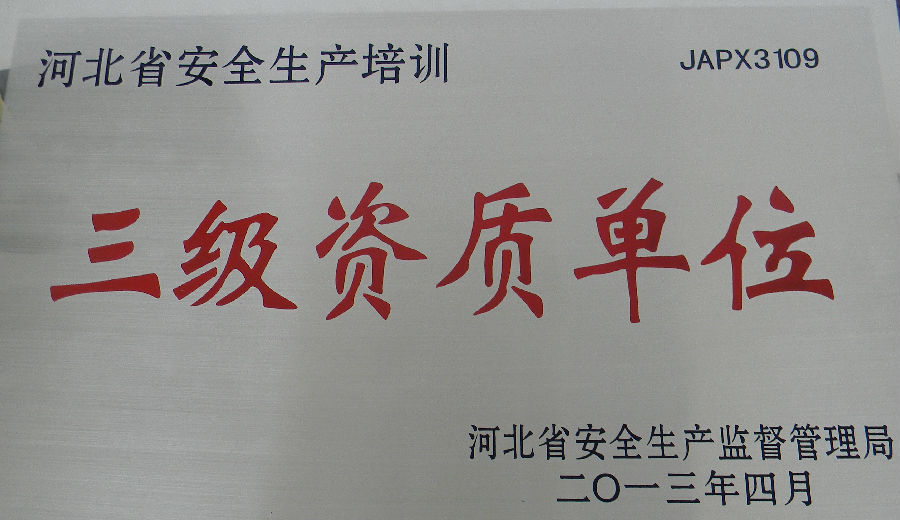 河北省安全生产培训
JAPX3109
三级资质单位
河北省安全生产监督管理局
二〇一三年四月